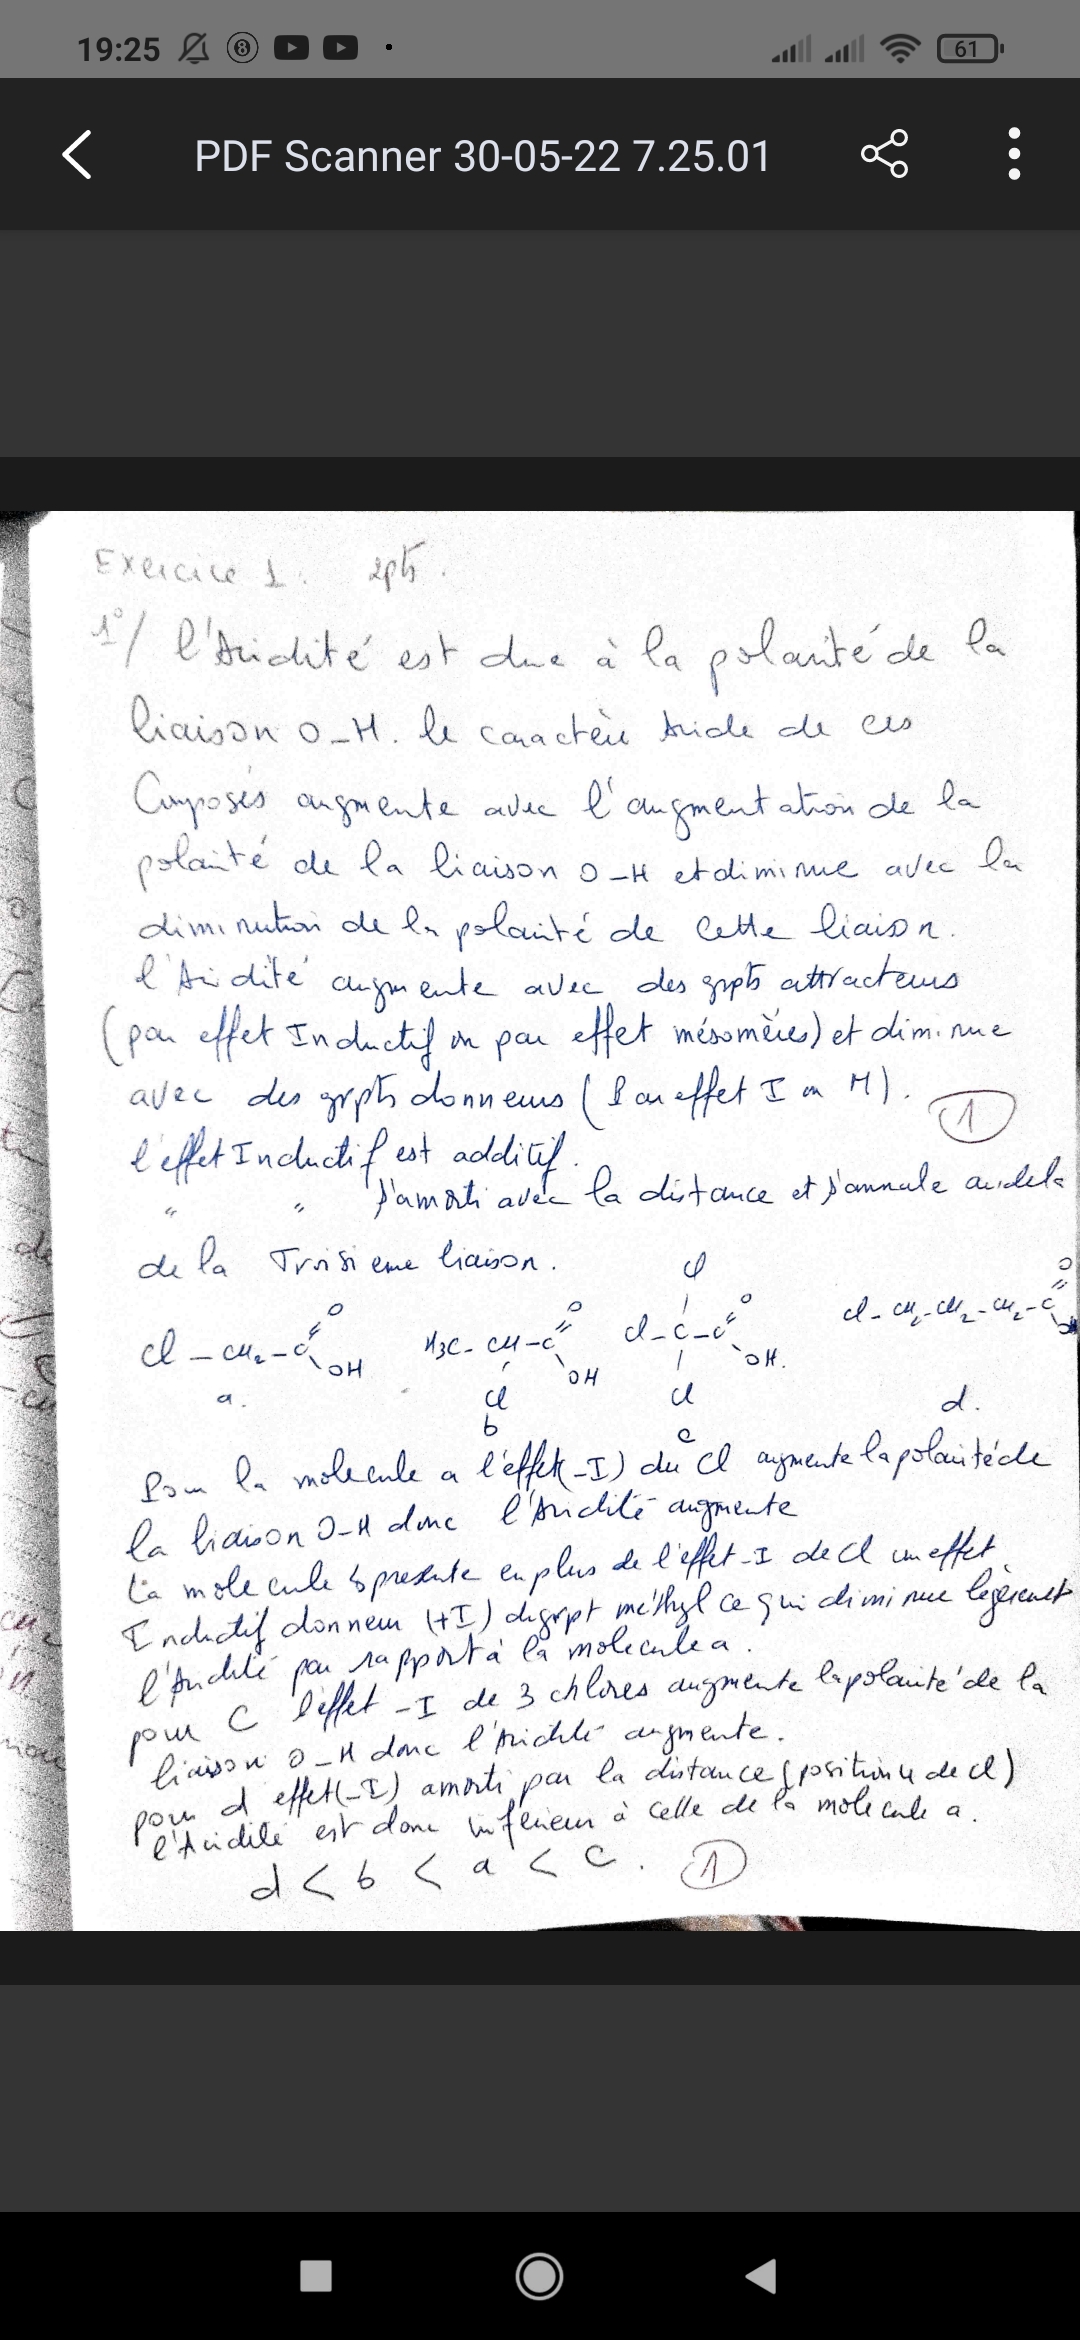 19:25
61
PDF Scanner 30-05-22 7.25.01
Exercice 1: 2pts.
1°/ l'Acidité est due à la polarité de la
liaison O-H. le caractère Acide de ces
Composés augmente avec l'augmentation de la
polarité de la liaison O-H et diminue avec la
diminution de la polarité de cette liaison.
l'Acidité augmente avec des grpts attracteurs
(par effet Inductif ou par effet mésomères) et diminue
avec des grpts donneurs (Par effet I ou M). 1
l'effet Inductif est additif.
" " s'amorti avec la distance et s'annule audela
de la Troisieme liaison.
Cl-CH2-C=O OH H3C-CH-C=O OH Cl Cl-C-C=O OH. Cl Cl-CH2-CH2-CH2-C=O OH
a. Cl b c d.
Pour la molecule a l'effet(-I) du Cl augmente la polarité de
la liaison O-H donc l'Acidité augmente
La molecule b presente en plus de l'effet -I de Cl un effet
Inductif donneur (+I) du grpt méthyl ce qui diminue légèrement
l'Acidité par rapport à la molecule a.
pour C l'effet -I de 3 chlores augmente la polarité de la
liaison O-H donc l'Acidité augmente.
pour d effet(-I) amorti par la distance (position 4 de Cl)
l'Acidité est donc inférieur à celle de la molecule a.
d < b < a < c. 1